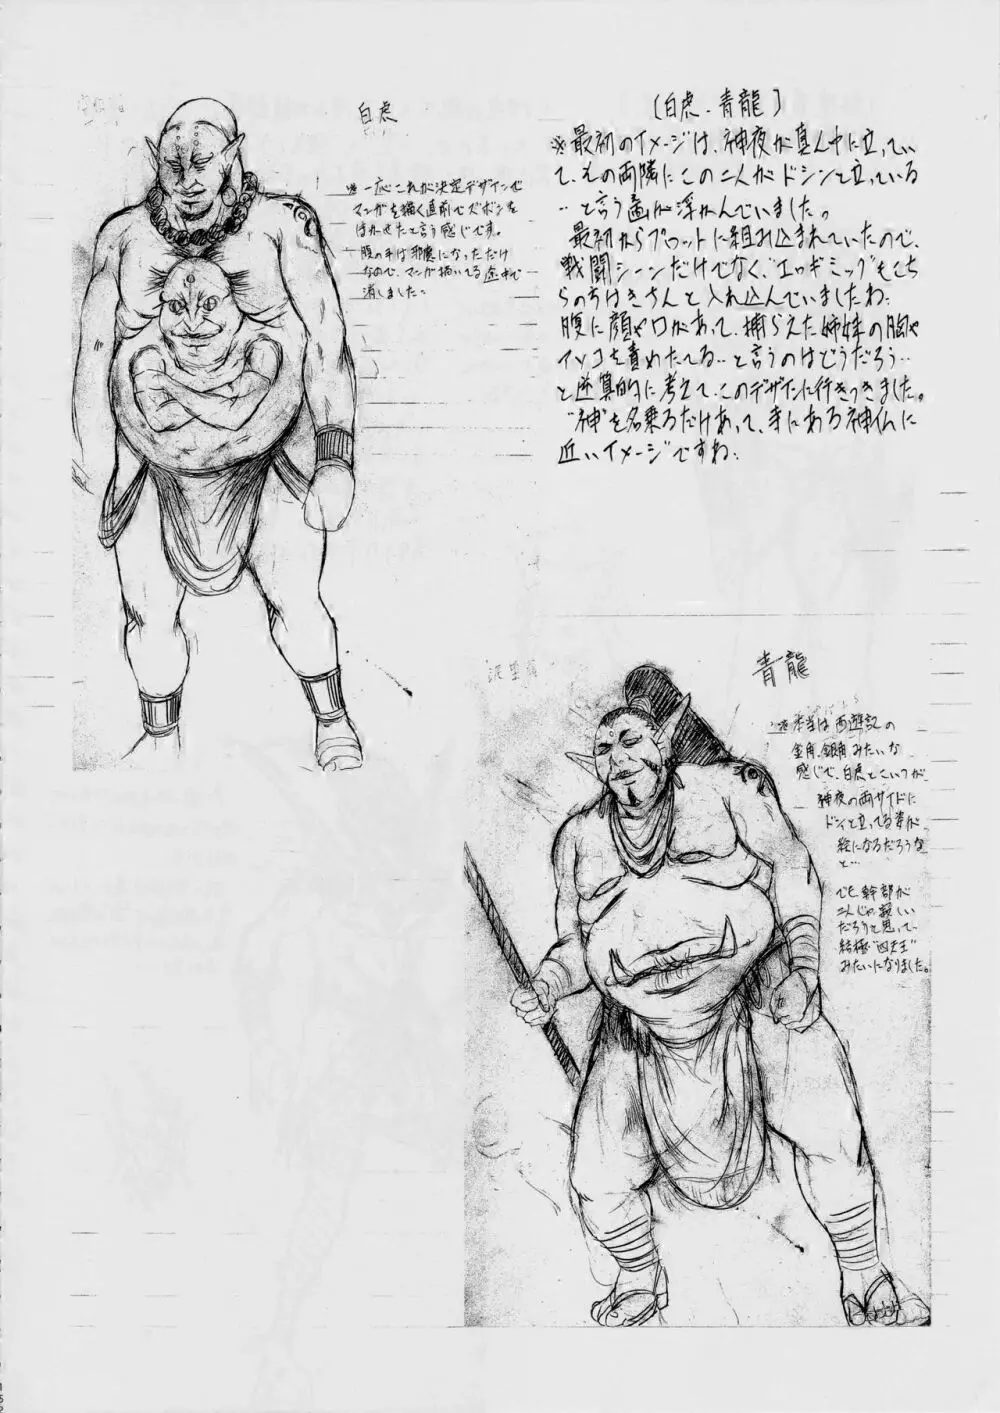 白虎
※一応これが決定デザインで
マンガを描く直前でズボンを
はかせたと言う感じです。
腹の手は邪魔になっただけ
なので、マンガ描いてる途中で
消しました。
(白虎・青龍)
※最初のイメージは、神夜が真ん中に立ってい
て、その両隣にこの二人がドシンと立っている
‥と言う画が浮かんでいました。
最初からプロットに組み込まれていたので、
戦闘シーンだけでなく、"エロギミック"もこち
らのちゃんと入れ込んでいましたね。
腹に顔や口があって、捕らえた姉妹の胸や
アソコを責めたてる‥と言うのはどうだろう‥
と逆算的に考えて、このデザインに行きつきました。
"神"を名乗るだけあって、寺にある神仏に
近いイメージですね。
青龍
※本当は西遊記の
金角、銀角みたいな
感じで、白虎とこいつが、
神夜の両サイドに
ドンと立ってる姿が
絵になるだろうな
と…
でも、幹部が
二人じゃ寂しい
だろうと思って、
結極"四天王"
みたいになりました。